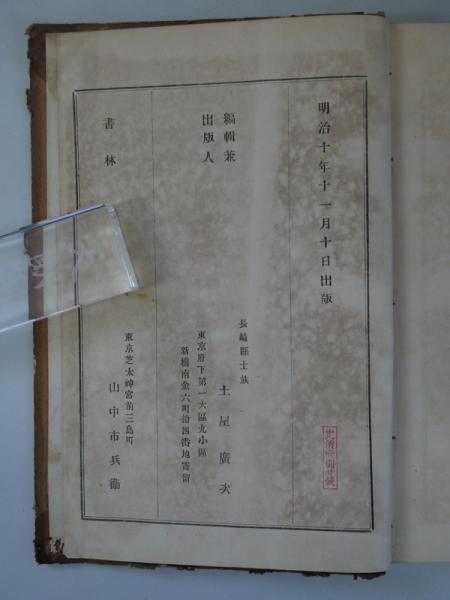 明治十年十一月十日出版
編輯兼
出版人
長崎縣士族
土屋廣次
東京府下第一大區九小區
新橋南金六町拾四街地寄留
書林
東京芝太神宮前三島町
山中市兵衞